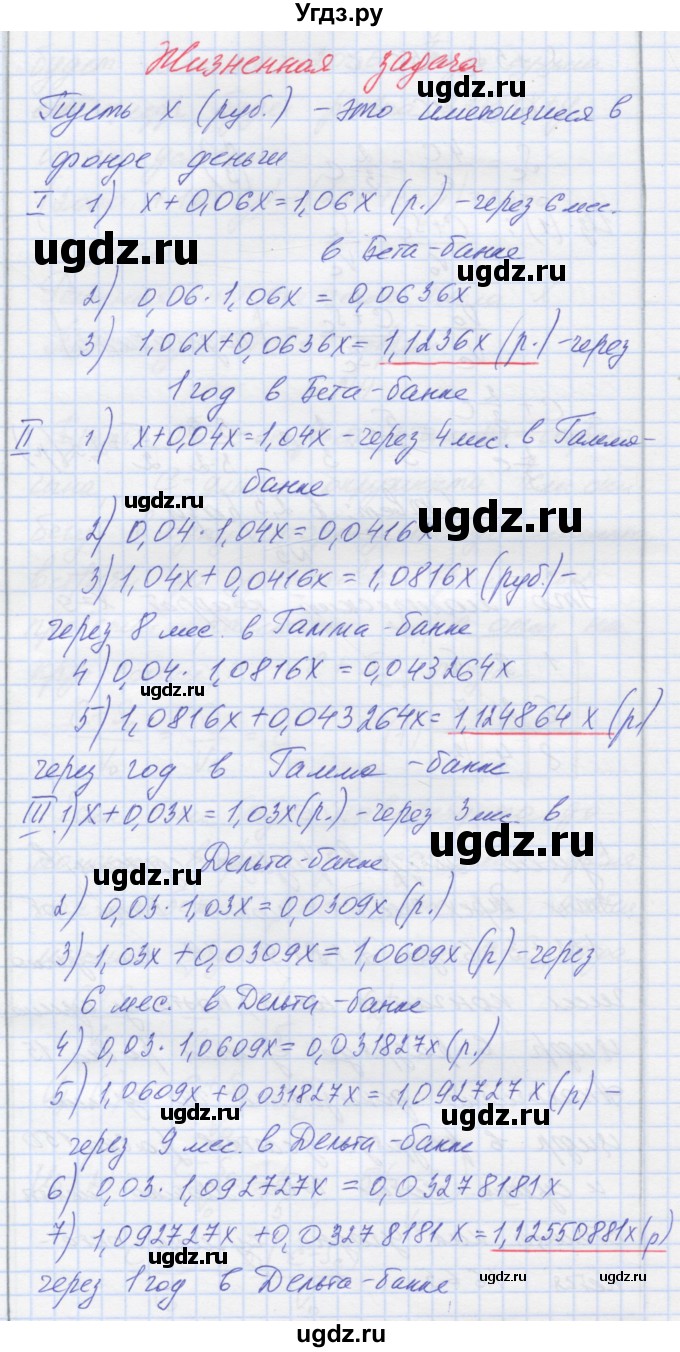 Угдз.ру
Жизненная задача
Пусть x (руб.) - это имеющиеся в
фонде деньги
I 1) x+0,06x=1,06x (р.) -через 6 мес.
в Бета-банке
ugdz.ru
ugdz.ru
2) 0,06·1,06x = 0,0636x
3) 1,06x+0,0636x= 1,1236x (р.)-через
1 год в Бета-банке
II. 1) x+0,04x=1,04x -через 4 мес. в Гамма-
банке
ugdz.ru
ugdz.ru
2) 0,04·1,04x=0,0416x
3) 1,04x+0,0416x=1,0816x(руб.)-
через 8 мес. в Гамма-банке
4) 0,04·1,0816x=0,043264x
ugdz.ru
5) 1,0816x+0,043264x= 1,124864x (р)
через год в Гамма-банке
III. 1) x+0,03x=1,03x(р.)-через 3 мес. в
ugdz.ru
Дельта-банке
ugdz.ru
2) 0,03·1,03x=0,0309x(р.)
3) 1,03x+0,0309x=1,0609x(р)-через
6 мес. в Дельта-банке
4) 0,03·1,0609x=0,031827x(р.)
5) 1,0609x+0,031827x=1,092727x(р)-
ugdz.ru
ugdz.ru
через 9 мес. в Дельта-банке
6) 0,03·1,092727x=0,03278181x
7) 1,092727x+0,03278181x=1,12550881x(р)
ugdz.ru
через 1 год в Дельта-банке
ugdz.ru
ugdz.ru
ugdz.ru